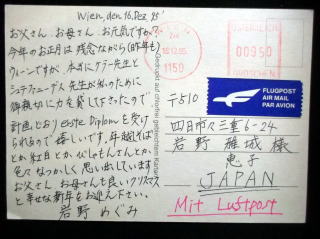 Wien, den 16. Dez. 95'
お父さん、お母さん、お元気ですか?
今年のお正月は残念ながら(昨年も)
ウィーンですが、本当にケラー先生と
先生が私のために
力を貸して下さったので
計画どおり erste Diplom を受け
られるので嬉しいです。年越そば
とか紅白とか
色々なつかしく思い出しています
お父さん お母さんも良いクリスマス
と幸せな新年をお迎え下さい。
岩野 めぐみ
18.12.95
1150
REPUBLIK ÖSTERREICH
00950
GROSCHEN
FLUGPOST
AIR MAIL
PAR AVION
〒510
四日市々三重6-24
岩野 雅城 様
恵子
JAPAN
Mit Luftpost